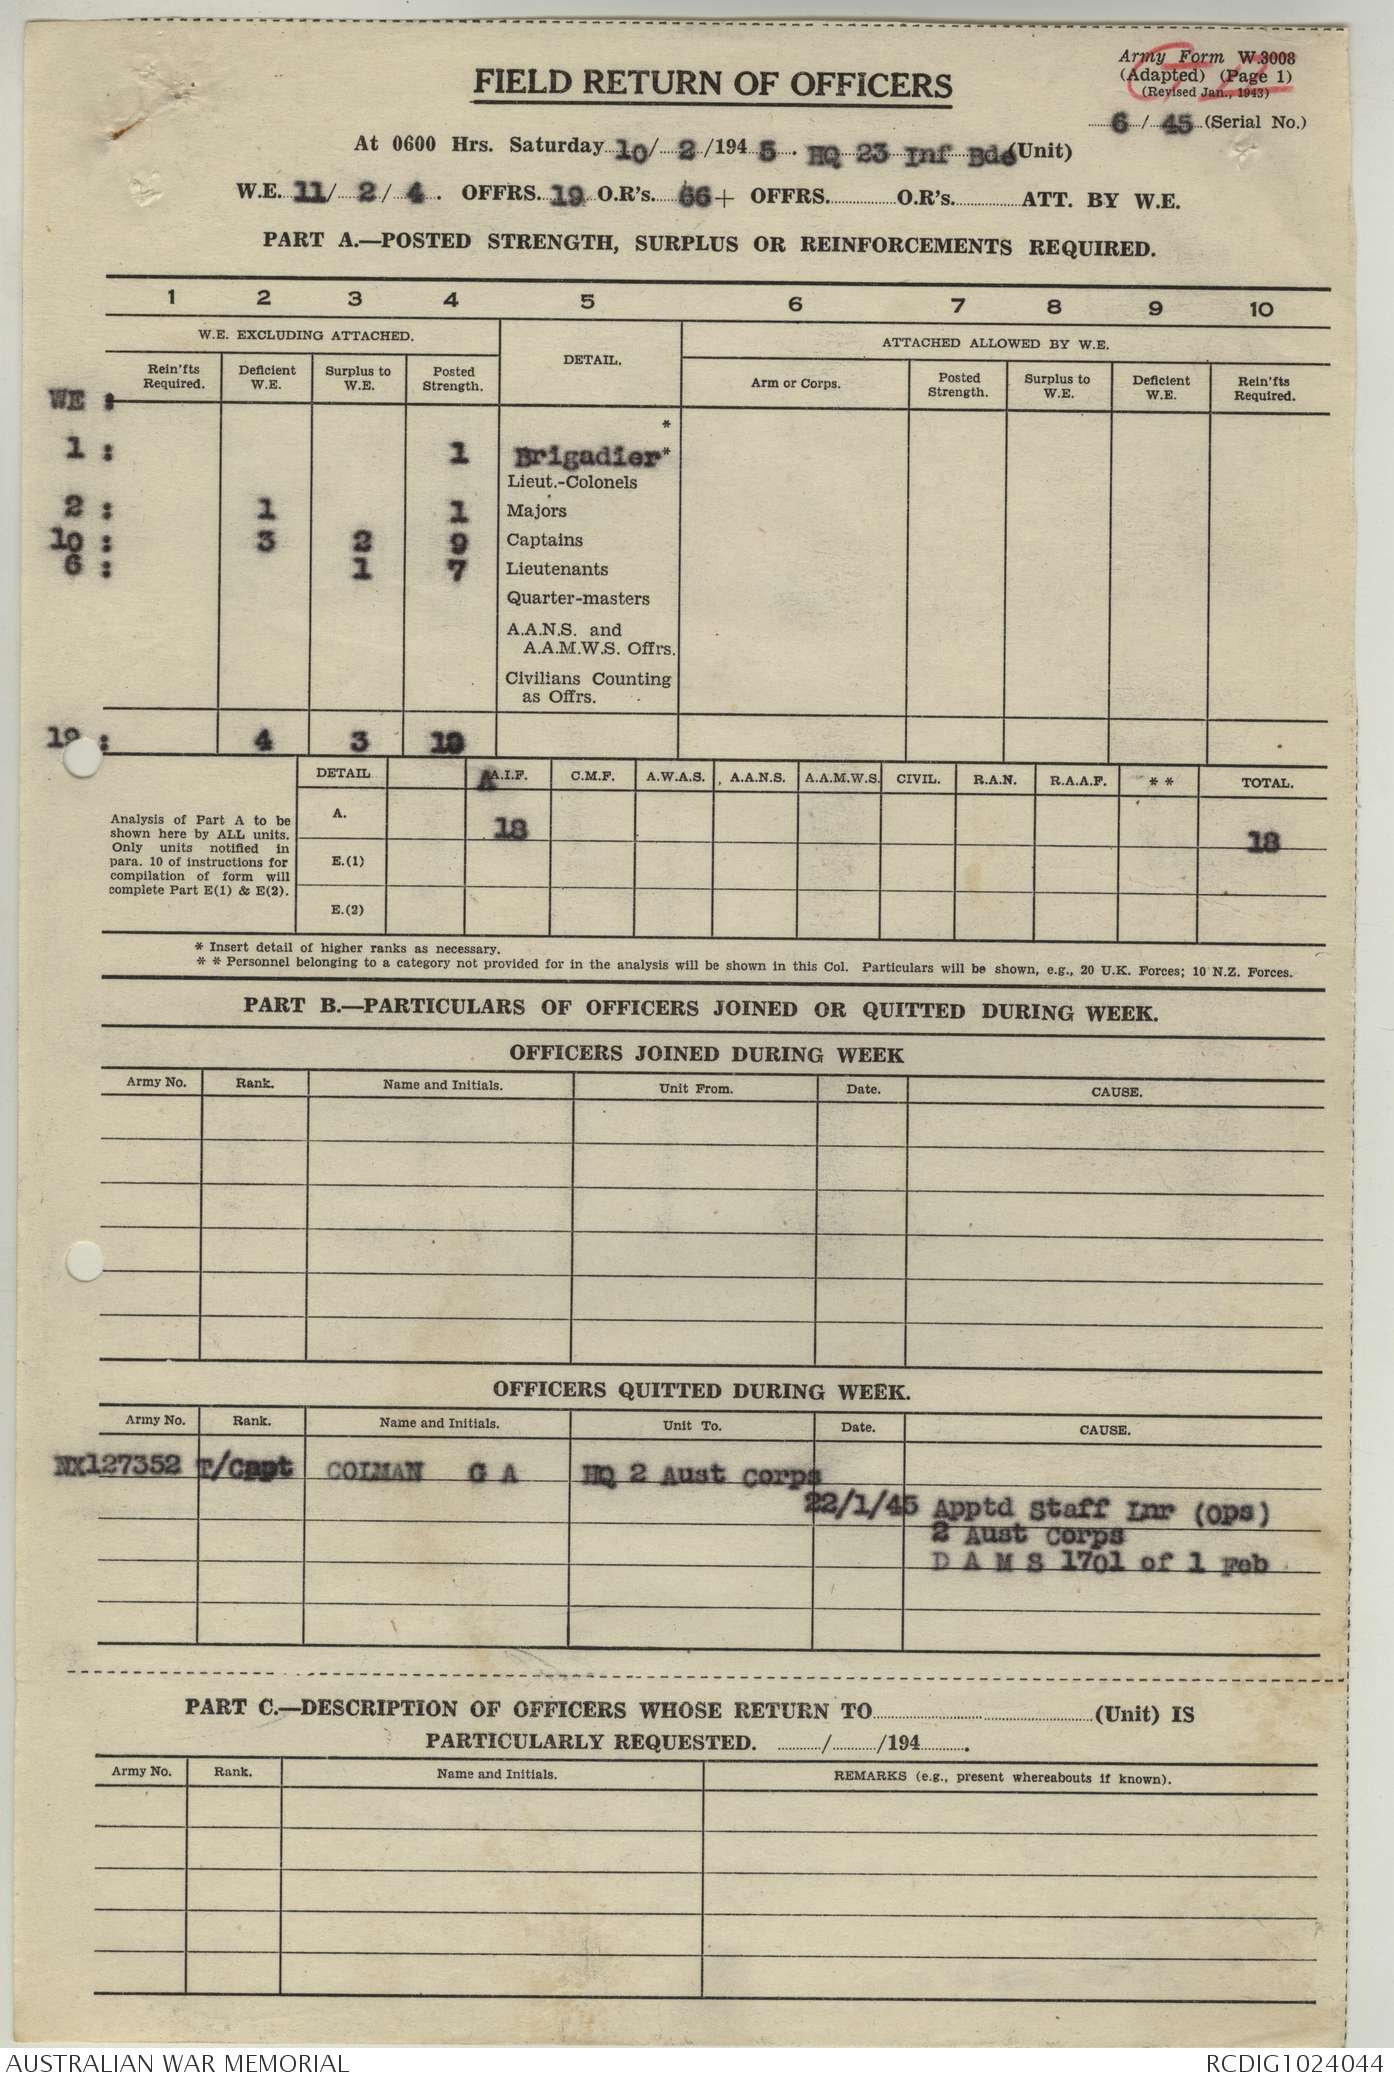 Army Form W.3008
(Adapted) (Page 1)
(Revised Jan., 1943)
FIELD RETURN OF OFFICERS
6 / 45 (Serial No.)
At 0600 Hrs. Saturday 10/ 2 /194 5 . HQ 23 Inf Bde (Unit)
W.E. 11/ 2 / 4 . OFFRS. 19 O.R's. 66 + OFFRS. O.R's. ATT. BY W.E.
PART A.—POSTED STRENGTH, SURPLUS OR REINFORCEMENTS REQUIRED.
1 2 3 4 5 6 7 8 9 10
W.E. EXCLUDING ATTACHED. DETAIL. ATTACHED ALLOWED BY W.E.
Rein'fts Required. Deficient W.E. Surplus to W.E. Posted Strength. Arm or Corps. Posted Strength. Surplus to W.E. Deficient W.E. Rein'fts Required.
WE :
*
1 : 1 Brigadier*
Lieut.-Colonels
2 : 1 1 Majors
10 : 3 2 9 Captains
6 : 1 7 Lieutenants
Quarter-masters
A.A.N.S. and
A.A.M.W.S. Offrs.
Civilians Counting
as Offrs.
19 : 4 3 18
DETAIL A.I.F. C.M.F. A.W.A.S. A.A.N.S. A.A.M.W.S. CIVIL. R.A.N. R.A.A.F. * * TOTAL.
Analysis of Part A to be
shown here by ALL units.
Only units notified in
para. 10 of instructions for
compilation of form will
complete Part E(1) & E(2).
A. 18 18
E.(1)
E.(2)
* Insert detail of higher ranks as necessary.
* * Personnel belonging to a category not provided for in the analysis will be shown in this Col. Particulars will be shown, e.g., 20 U.K. Forces; 10 N.Z. Forces.
PART B.—PARTICULARS OF OFFICERS JOINED OR QUITTED DURING WEEK.
OFFICERS JOINED DURING WEEK
Army No. Rank. Name and Initials. Unit From. Date. CAUSE.
OFFICERS QUITTED DURING WEEK.
Army No. Rank. Name and Initials. Unit To. Date. CAUSE.
NX127352 T/Capt COLMAN G A HQ 2 Aust Corps
22/1/45 Apptd Staff Lnr (Ops)
2 Aust Corps
D A M S 1701 of 1 Feb
PART C.—DESCRIPTION OF OFFICERS WHOSE RETURN TO (Unit) IS
PARTICULARLY REQUESTED. / /194 .
Army No. Rank. Name and Initials. REMARKS (e.g., present whereabouts if known).
AUSTRALIAN WAR MEMORIAL RCDIG1024044